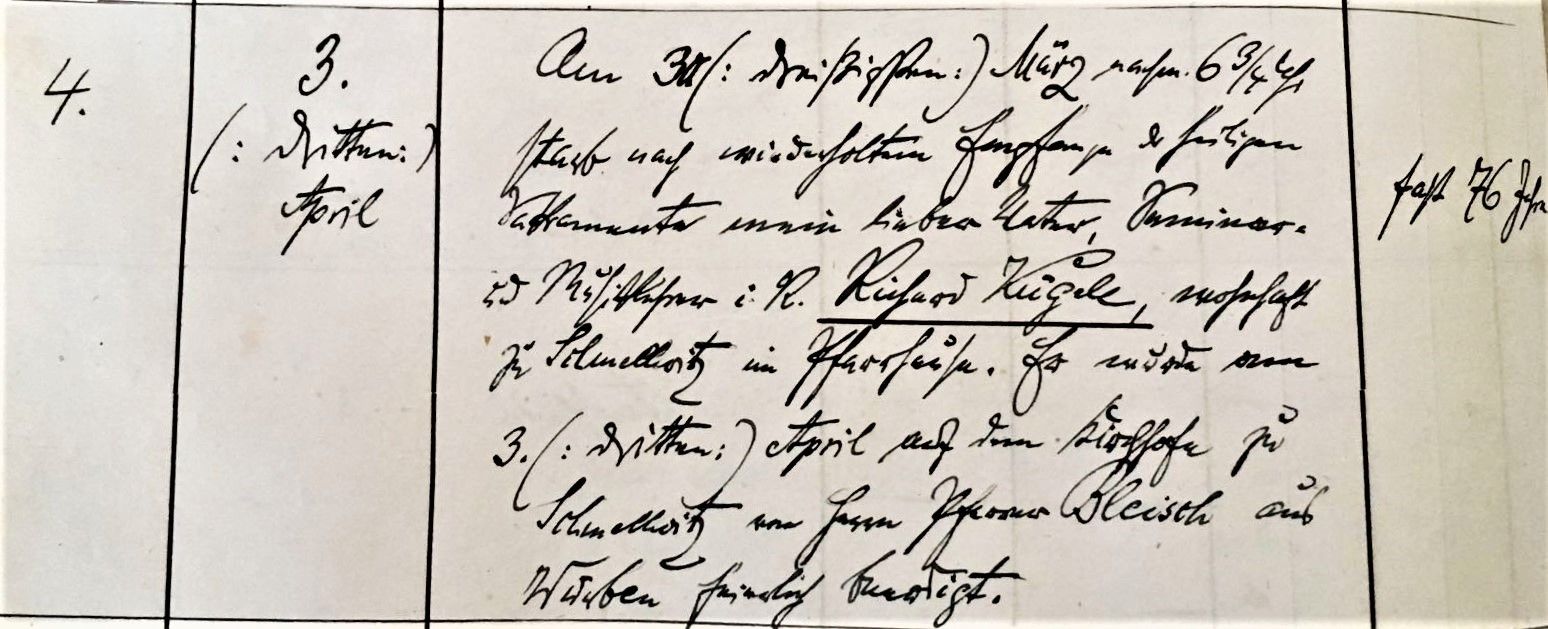 4.
3.
(: dritten :)
April
Am 30 (: dreißigsten :) März nachm. 6 3/4 Uhr
starb nach wiederholtem Empfange der heiligen
Sakramente mein lieber Vater, Seminar-
und Musiklehrer i. R. Richard Kügele, wohnhaft
zu Schmellwitz im Pfarrhause. Er wurde am
3. (: dritten :) April auf dem Kirchhofe zu
Schmellwitz von Herrn Pfarrer Bleisch aus
Würben feierlich beerdigt.
fast 76 Jahre